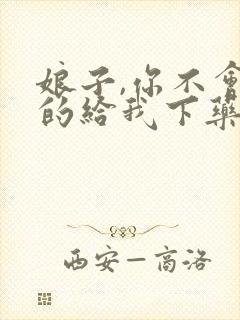 娘子,你不會
的給我下藥
西安—高洛